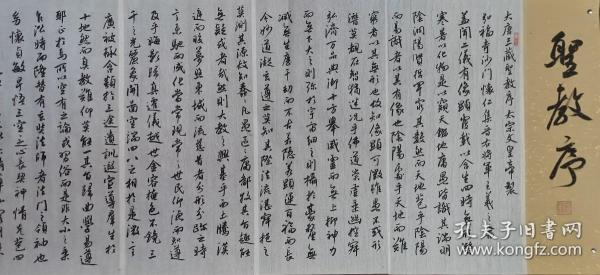 聖教序
大唐三藏聖教序 太宗文皇帝製
弘福寺沙門懷仁集晉右將軍王羲
蓋聞二儀有像顯覆載以含生四時無形潛
寒暑以化物是以窺天鑑地庸愚皆識其端明
陰洞陽賢哲罕窮其數然而天地苞乎陰陽
而易識者以其有像也陰陽處乎天地而難
窮者以其無形也故知像顯可徵雖愚不惑形
潛莫覩在智猶迷況乎佛道崇虛乘幽控寂
弘濟萬品典御十方舉威靈而無上抑神力
而無下大之則彌於宇宙細之則攝於毫釐無
滅無生歷千劫而不古若隱若顯運百福而長
今妙道凝玄遵之莫知其際法流湛寂挹之
莫測其源故知蠢蠢凡愚區區庸鄙投其旨趣能
無疑或者哉然則大教之興基乎西土騰漢
庭而皎夢照東域而流慈昔者分形分跡之時
言未馳而成化當常現常之世民仰德而知遵
及乎晦影歸真遷儀越世金容掩色不鏡三
千之光麗象開圖空端四八之相於是微言
廣被拯含類於三途遺訓遐宣導群生於
十地然而真教難仰莫能一其旨歸曲學易遵
邪正於焉所以空有之論或習俗而是非大小之乘
乍沿時而隆替有玄奘法師者法門之領袖也
幼懷貞敏早悟三空之心長契神情先苞四